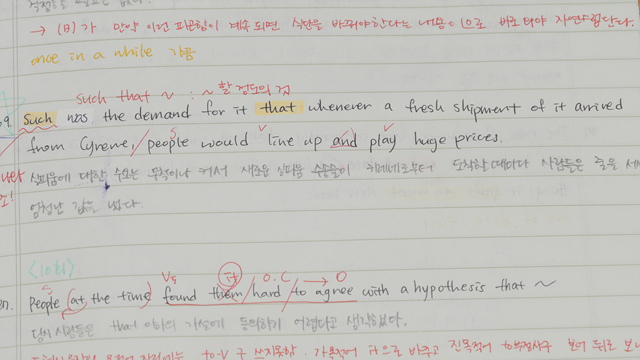 → (B)가 만약 이런 피곤함이 계속 되면 식단을 바꿔야한다는 내용이므로 바로 와야 자연스럽단다.
once in a while 가끔
such that ~ : ~할 정도의 것
69. Such was the demand for it that whenever a fresh shipment of it arrived
from Cyrene, / people would line up and play huge prices.
S V V
실피움에 대한 수요는 무척이나 커서 새로운 실피움 수송품이 키레네로부터 도착할 때마다 사람들은 줄을
엄청난 값을 냈다.
<10회>
S V5 it O.C → O
People (at the time) found them / hard / to agree with a hypothesis that ~
당시 사람들은 that 이하의 가설에 동의하기 어렵다고 생각하였다.
to-V 구 쓰지못함. 가목적어 it으로 바꾸고 진목적어